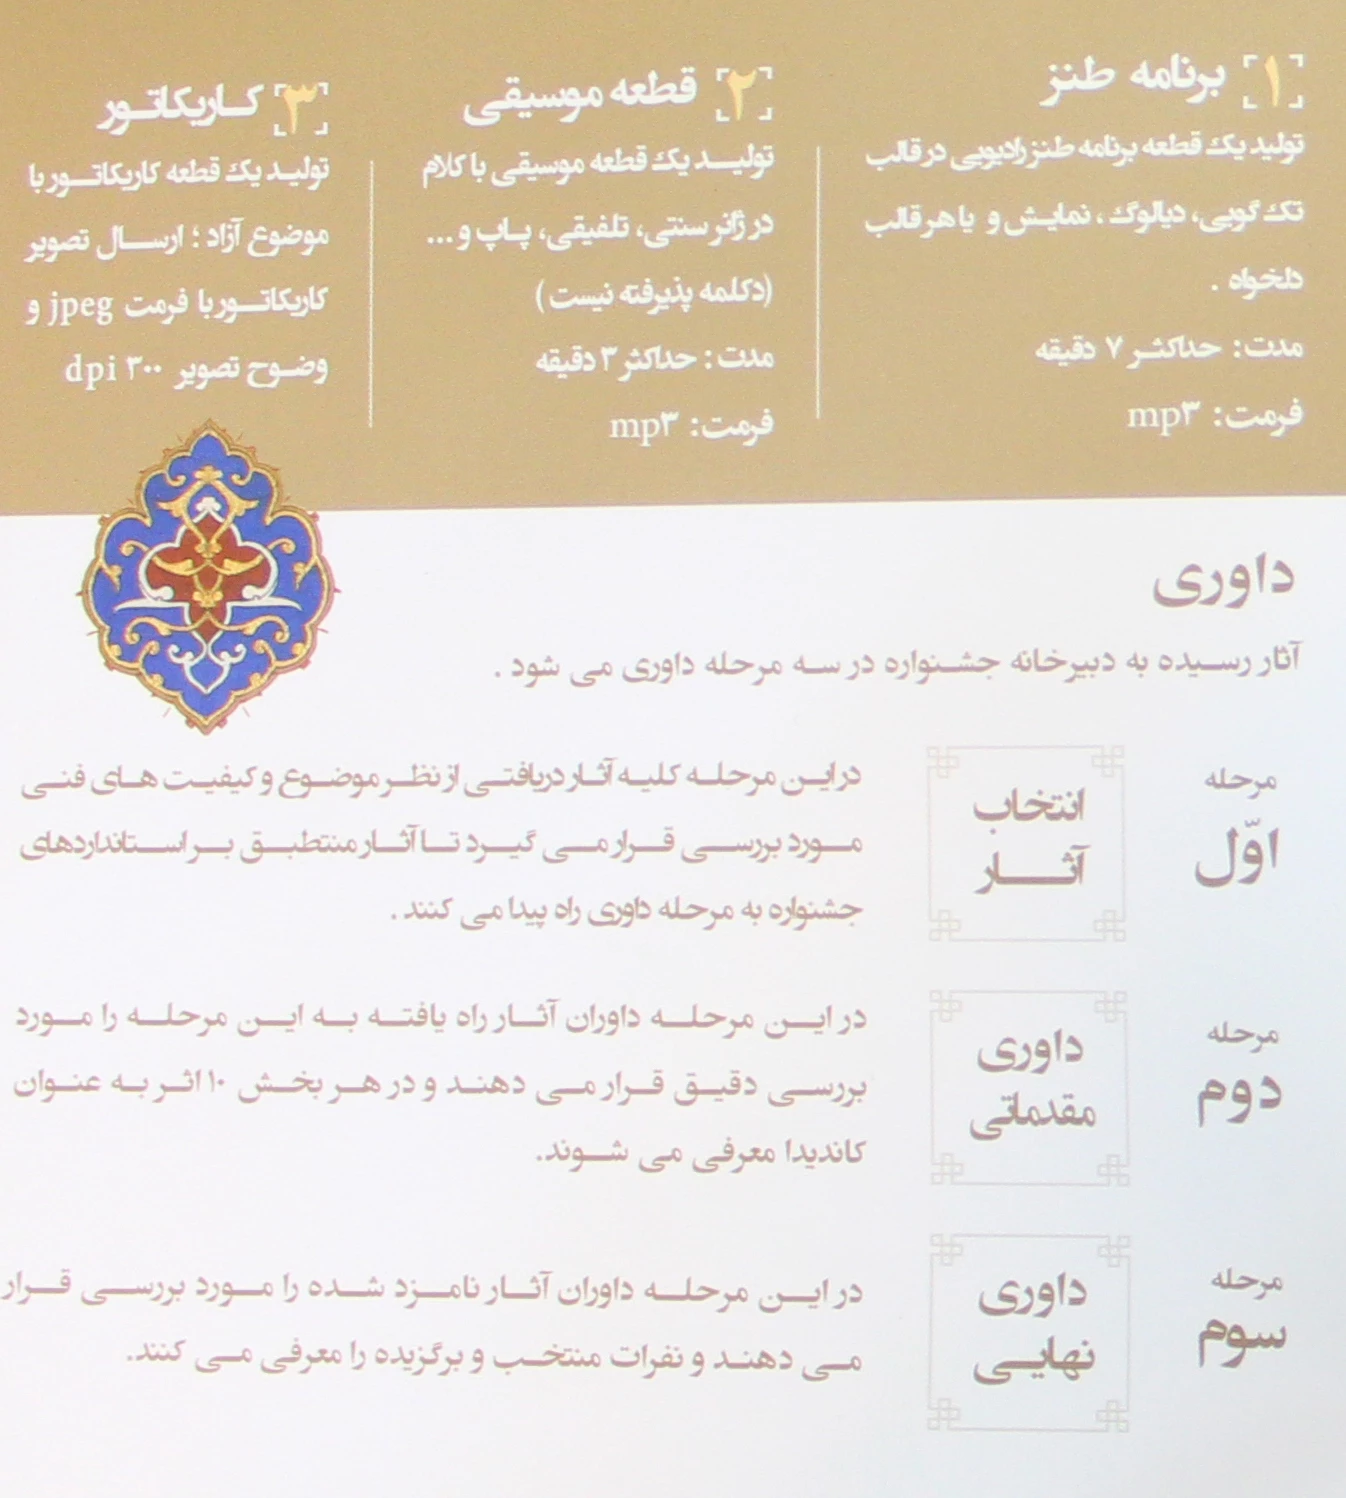 ۱ برنامه طنز
تولید یک قطعه برنامه طنز رادیویی در قالب
تک گویی، دیالوگ، نمایش و یا هر قالب
دلخواه .
مدت: حداکثر ۷ دقیقه
فرمت: mp۳
۲ قطعه موسیقی
تولید یک قطعه موسیقی با کلام
در ژانر سنتی، تلفیقی، پاپ و...
(دکلمه پذیرفته نیست)
مدت: حداکثر ۳ دقیقه
فرمت: mp۳
۳ کاریکاتور
تولید یک قطعه کاریکاتور با
موضوع آزاد ؛ ارسال تصویر
کاریکاتور با فرمت jpeg و
وضوح تصویر ۳۰۰ dpi
داوری
آثار رسیده به دبیرخانه جشنواره در سه مرحله داوری می شود .
مرحله
اوّل
انتخاب
آثار
در این مرحله کلیه آثار دریافتی از نظر موضوع و کیفیت های فنی
مورد بررسی قرار می گیرد تا آثار منتطبق بر استانداردهای
جشنواره به مرحله داوری راه پیدا می کنند .
مرحله
دوم
داوری
مقدماتی
در این مرحله داوران آثار راه یافته به این مرحله را مورد
بررسی دقیق قرار می دهند و در هر بخش ۱۰ اثر به عنوان
کاندیدا معرفی می شوند.
مرحله
سوم
داوری
نهایی
در این مرحله داوران آثار نامزد شده را مورد بررسی قرار
می دهند و نفرات منتخب و برگزیده را معرفی می کنند.